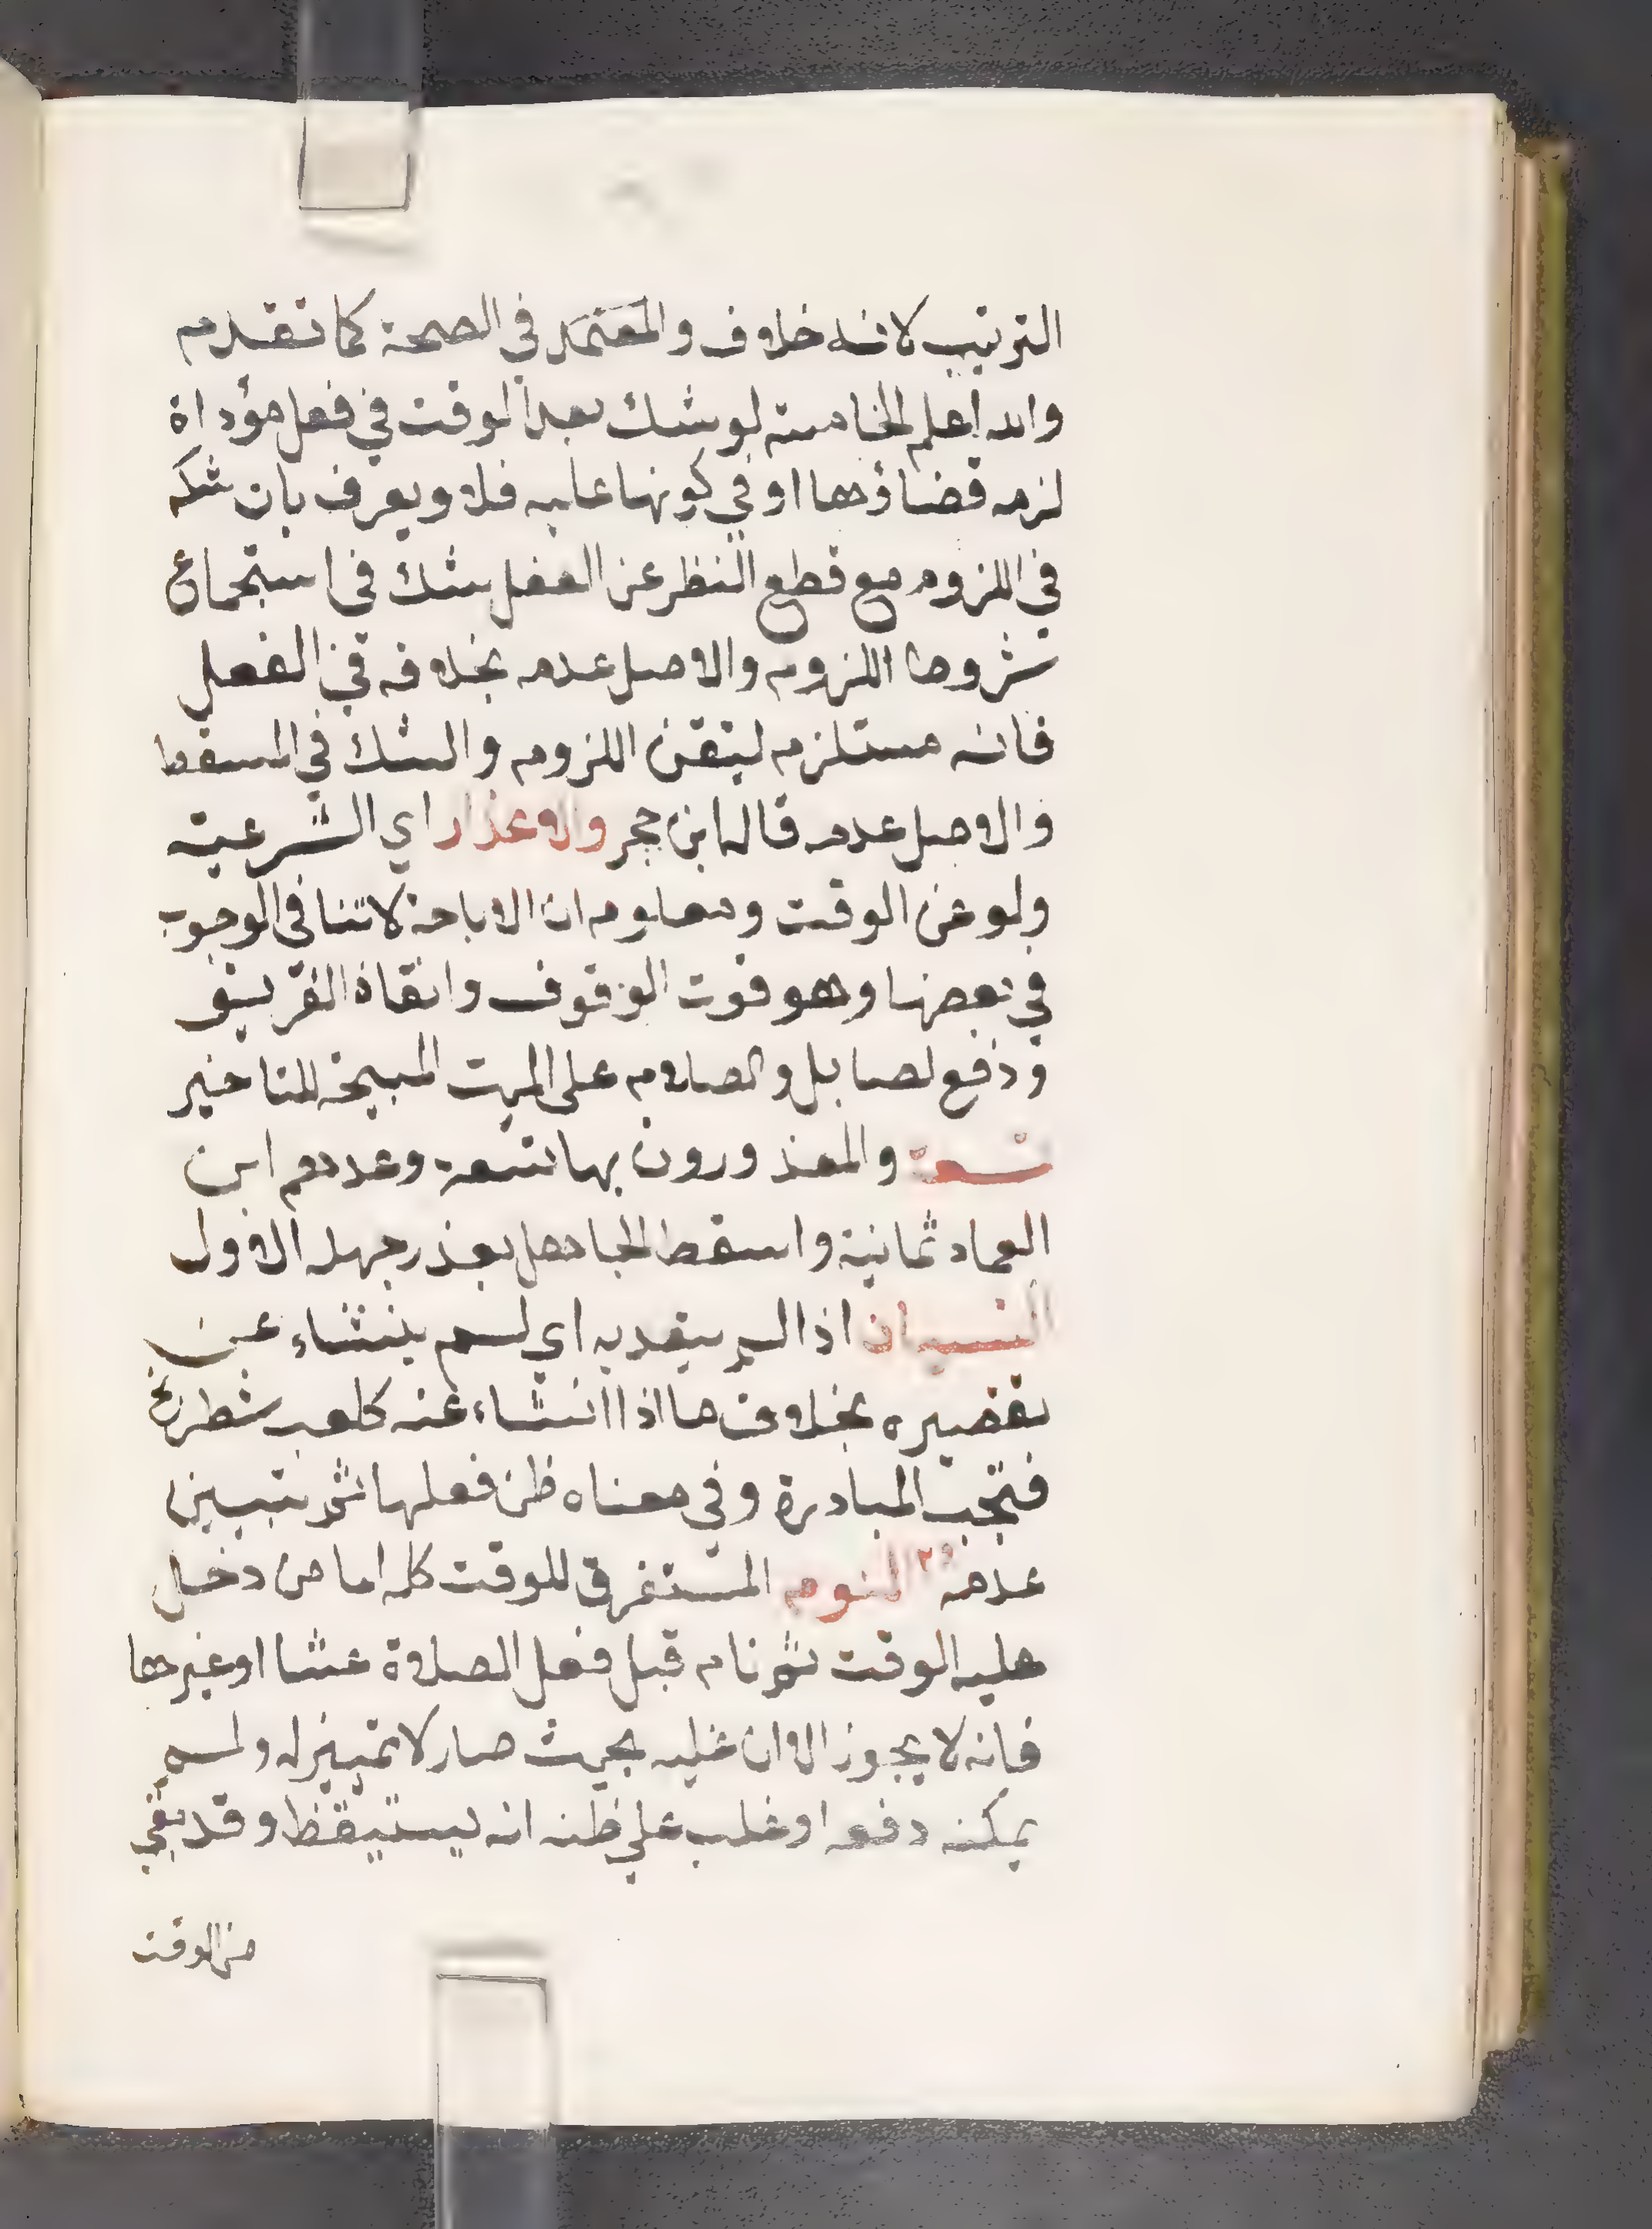 الترتيب لانه خلاف والمعتمد في الصحة كما تقدم
والله اعلم الخامسة لو شك بعد الوقت في فعل مؤداة
لزمه قضاؤها او في كونها عليه فلا ويعرف بان شكه
في اللزوم مع قطع النظر عن الفعل شك في استجماع
شروط اللزوم والاصل عدمه بخلافه في الفعل
فانه مستلزم لتيقن اللزوم والشك في المسقط
والاصل عدمه قاله ابن حجر والاعذار اي الشرعية
ولو عن الوقت ومعلوم ان الاباحة لا تنافي الوجوب
في بعضها وهو فوت الوقوف وانقاذ الغريق
ودفع لصايل والصلاة على الميت المبيحة للتاخير
تسعة والمعذورون بها تسعة وعدهم ابن
العماد ثمانية واسقط الجاهل بعذر جهله الاول
النسيان اذا لم يتعد به اي لم ينشاء عن
تقصيره بخلاف ما اذا انشاء عنه كلعب شطرنج
فتجب المبادرة وفي معناه ظن فعلها ثم تبين
عدمه و٢ النوم المستغرق للوقت كله اما من دخل
عليه الوقت ثم نام قبل فعل الصلاة عشا او غيرها
فانه لا يجوز الا ان غلبه بحيث صار لا تمييز له ولم
يمكنه دفعه او غلب على ظنه انه يستيقظ وقد بقي
من الوقت